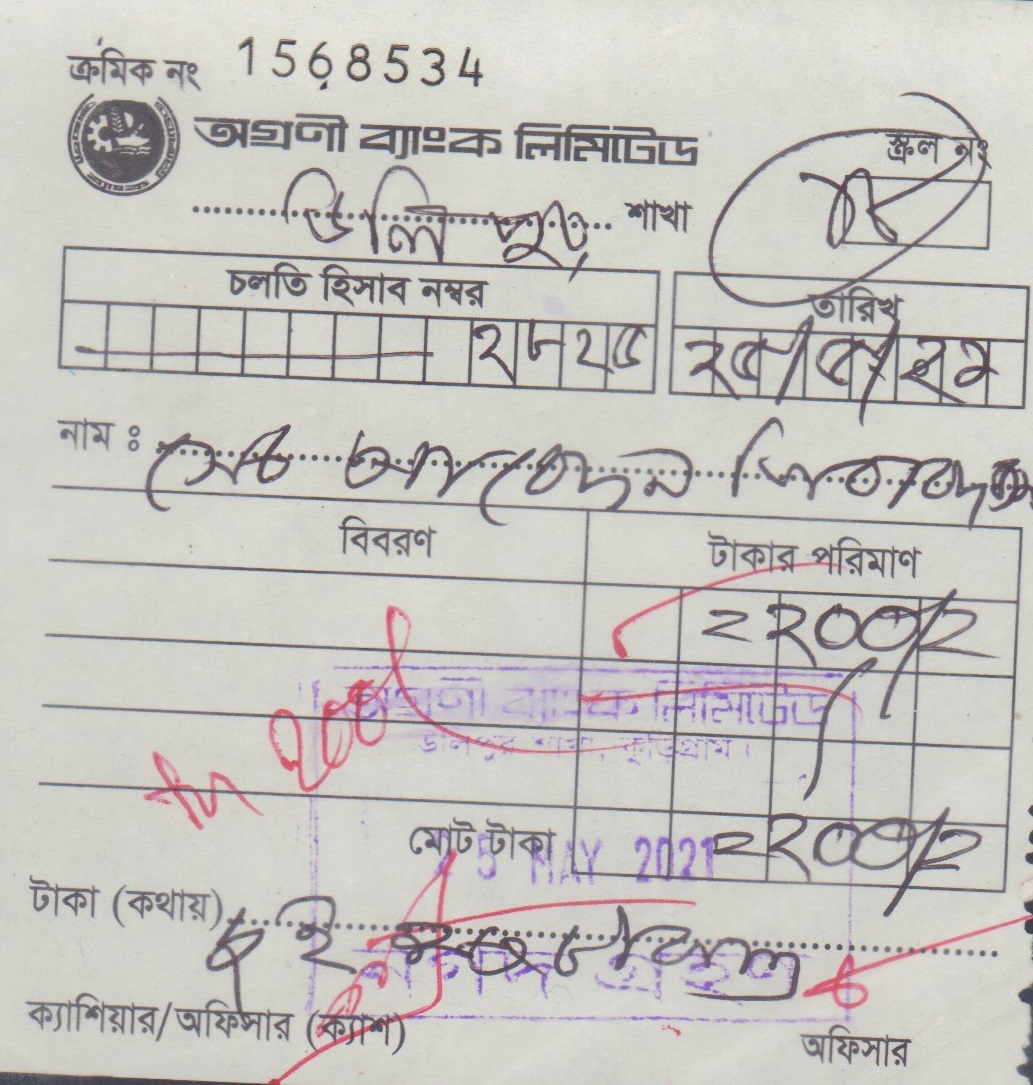 ক্রমিক নং 1568534
অগ্রণী ব্যাংক লিমিটেড
স্ক্রল নং
উলিপুর শাখা
চলতি হিসাব নম্বর
তারিখ
২৮২৫
২৫/৫/২১
নাম ঃ
বিবরণ
টাকার পরিমাণ
=২০০/=
অগ্রণী ব্যাংক লিমিটেড
উলিপুর শাখা, কুড়িগ্রাম।
মোট টাকা =২০০/=
25 MAY 2021
টাকা (কথায়) দুই শত টাকা
নগদ গ্রহণ
ক্যাশিয়ার/অফিসার (ক্যাশ)
অফিসার